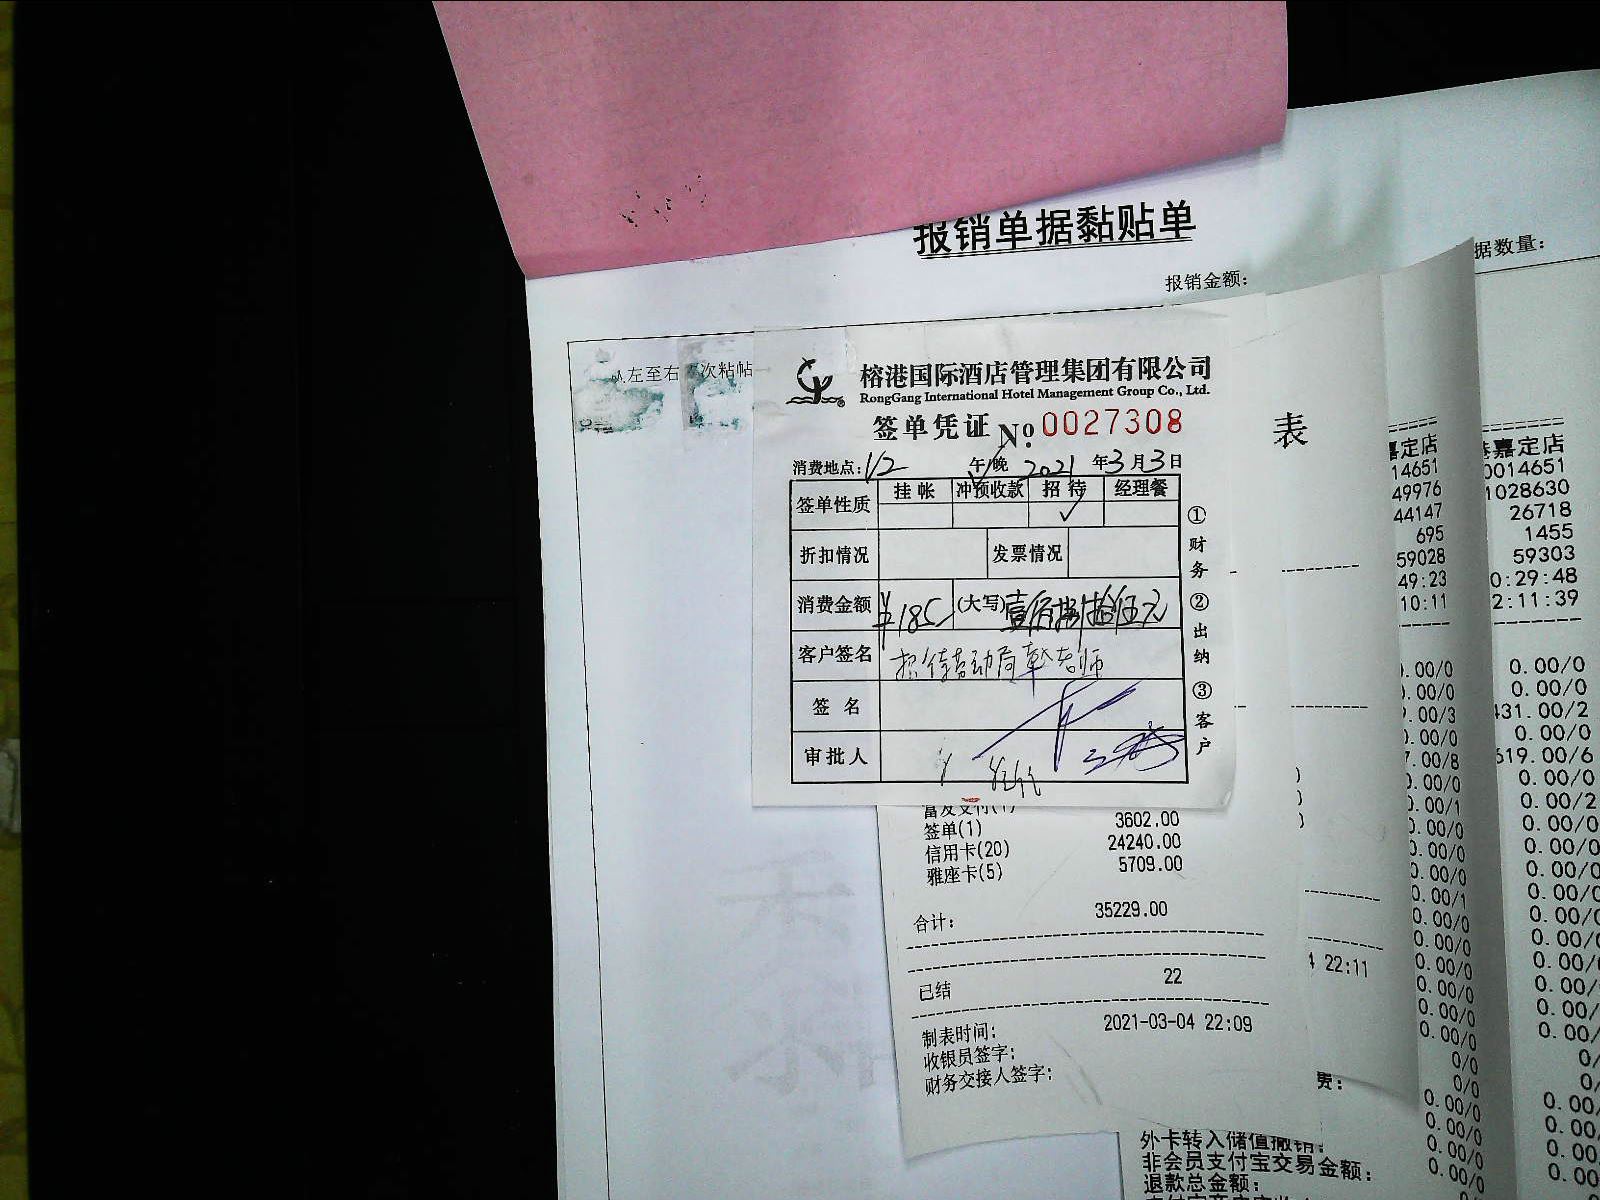 报销单据黏贴单
据数量：
报销金额：
从左至右 次粘帖
榕港国际酒店管理集团有限公司
RongGang International Hotel Management Group Co., Ltd.
签单凭证 No. 0027308
消费地点：1/2 午/晚 2021年3月3日
签单性质 挂帐 冲预收款 招待 经理餐
✓
折扣情况 发票情况
消费金额 ¥185 (大写) 壹佰捌拾伍元
客户签名 招待劳动局 老师
签名
审批人
①财务 ②出纳 ③客户
表
富友支付(1) 3602.00
签单(1)
信用卡(20) 24240.00
雅座卡(5) 5709.00
合计： 35229.00
已结 22
制表时间： 2021-03-04 22:09
收银员签字：
财务交接人签字：
4 22:11
费：
嘉定店
14651
49976
44147
695
59028
49:23
10:11
0.00/0
0.00/0
.00/3
0.00/0
7.00/8
0.00/0
0.00/1
0.00/0
0.00/0
0.00/0
0.00/1
0.00/0
0.00/0
0.00/0
0.00/0
0.00/0
0/0
0/0
0.00/0
0.00/0
0.00/0
0.00/0
港嘉定店
0014651
1028630
26718
1455
59303
0:29:48
2:11:39
0.00/0
0.00/0
431.00/2
0.00/0
619.00/6
0.00/0
0.00/2
0.00/0
0.00/0
0.00/0
0.00/0
0.00/
0.00/
0.00/
0.00/
0.00/
0/
0/
0.00/
0.00
0.00
0.00
外卡转入储值撤销：
非会员支付宝交易金额：
退款总金额：